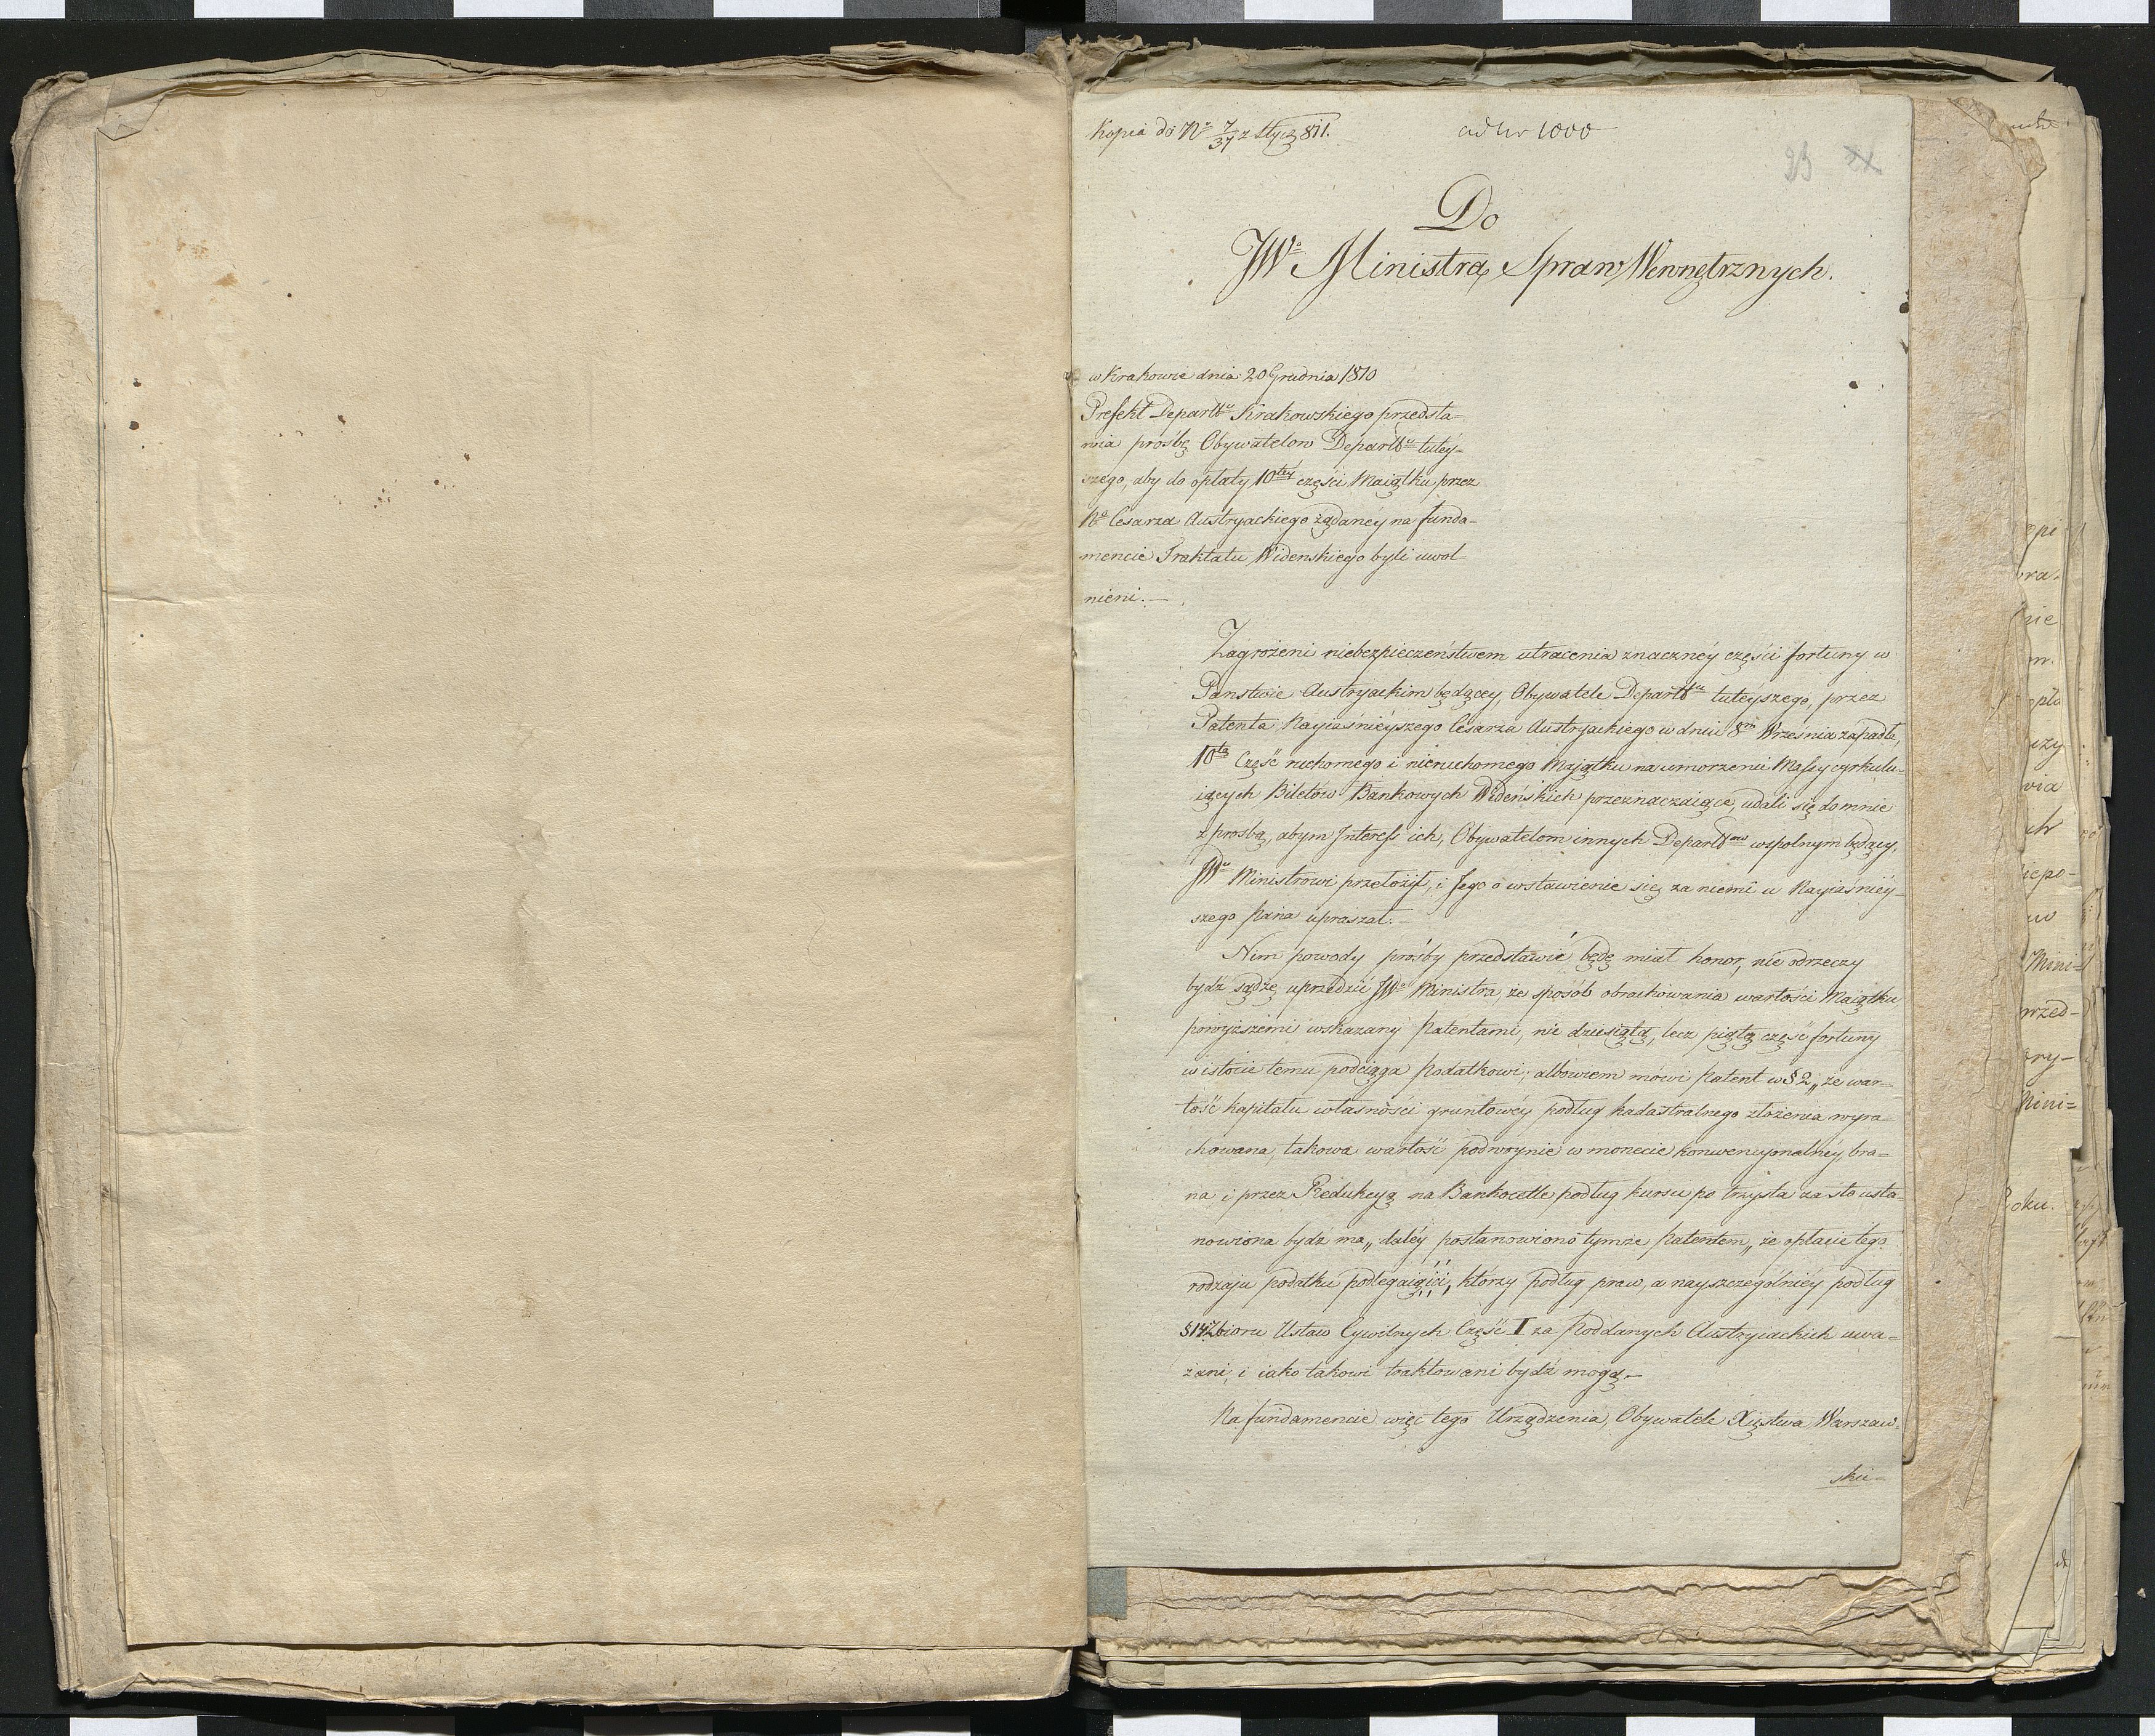 Kopia do Nº 7/37 z Stycz 811. ad Nr 1000
23
Do
JWº Ministra Spraw Wewnętrznych.
w Krakowie dnia 20 Grudnia 1810
Prefekt Departtu Krakowskiego przedsta=
wia prośbę Obywatelow Departtu tutey=
szego, aby do opłaty 10téy części Maiątku przez
Nº Cesarza Austryackiego żądanéy na funda=
mencie Traktatu Widenskiego byli uwol=
nieni.—
Zagrożeni niebezpieczeństwem utracenia znacznéy części fortuny w
Panstwie Austryackim będącey, Obywatele Departtu tuteyszego, przez
Patenta Nayiaśnieyszego Cesarza Austryackiego w dniu 8m Września zapadłe,
10tą Część ruchomego i nieruchomego Majątku na umorzenie Massy cyrkulu=
iących Biletów Bankowych Wideńskich przeznaczaiące, udali się do mnie
z prośbą, abym Interess ich, Obywatelom innych Departtow wspolnym będący,
JWu Ministrowi przełożył, i Jego o wstawienie się za niemi u Nayiaśniéy=
szego Pana upraszał.—
Nim powody prośby przedstawić będę miał honor, nie odrzeczy
bydź sądzę uprzedzić JWº Ministra, że sposób obrachowania wartości Maiątku
powyższemi wskazany Patentami, nie dziesiątą, lecz piątą część fortuny
w istocie temu podciąga Podatkowi; albowiem mówi Patent w § 2 „że war=
tość kapitału własności gruntowéy podług kadastralnego złożenia wyra=
chowana, takowa wartość podwóynie w monecie konwencyonalnéy bra=
na i przez Redukcyą na Bankocetle podług kursu po trzysta za sto usta=
nowiona bydź ma„ daléy postanowiono tymże Patentem„ że opłacie tego
rodzaju podatku podlegaiąci, którzy podług praw, a nayszczególniéy podług
§ 14 Zbioru Ustaw Cywilnych Część I za Poddanych Austryiackich uwa=
żani, i iako takowi traktowani bydź mogą.—
Na fundamencie więc tego Urządzenia, Obywatele Xięstwa Warszaw=
skie=